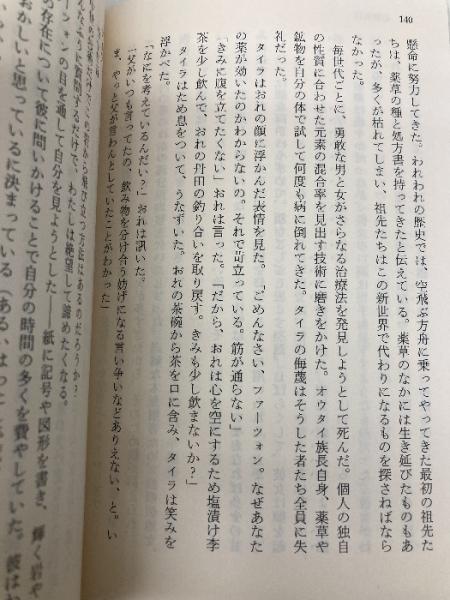 140
懸命に努力してきた。われわれの歴史では、空飛ぶ方舟に乗ってやってきた最初の祖先た
ちは、薬草の種と処方書を持ってきたと伝えている。薬草のなかには生き延びたものもあ
ったが、多くが枯れてしまい、祖先たちはこの新世界で代わりになるものを探さねばなら
なかった。
毎世代ごとに、勇敢な男と女がさらなる治療法を発見しようとして死んだ。個人の独自
の性質に合わせた元素の混合率を見出す技術に磨きをかけた。オウタイ族長自身、薬草や
鉱物を自分の体で試して何度も病に倒れてきた。タイラの侮蔑はそうした者たち全員に失
礼だった。
タイラはおれの顔に浮かんだ表情を見た。「ごめんなさい、ファーツォン。なぜあなた
の薬が効いたのかわからないの。それで苛立っている。筋が通らない」
「きみに腹を立てたくない」おれは言った。「だから、おれは心を空にするため塩漬け李
茶を少し飲んで、おれの丹田の釣り合いを取り戻す。きみも少し飲まないか？」
タイラはため息をついて、うなずいた。おれの茶碗から茶を口に含み、タイラは笑みを
浮かべた。
「なにを考えているんだい？」おれは訊いた。
「父がいつも言ってたの、飲み物を分け合う妨げになる言い争いなどありえない、と。い
ま、やっと父が言わんとしていたことがわかった」
法はあるのだろうか？
ように質問するだけで、わたしは絶望して諦めたくなる。
ーツォンの目を通して自分を見ようとした――紙に記号や図形を書き、輝く岩や
の存在について彼に問いかけることで自分の時間の多くを費やしていた。彼はお
おかしいと思っているに決まっている（あるい